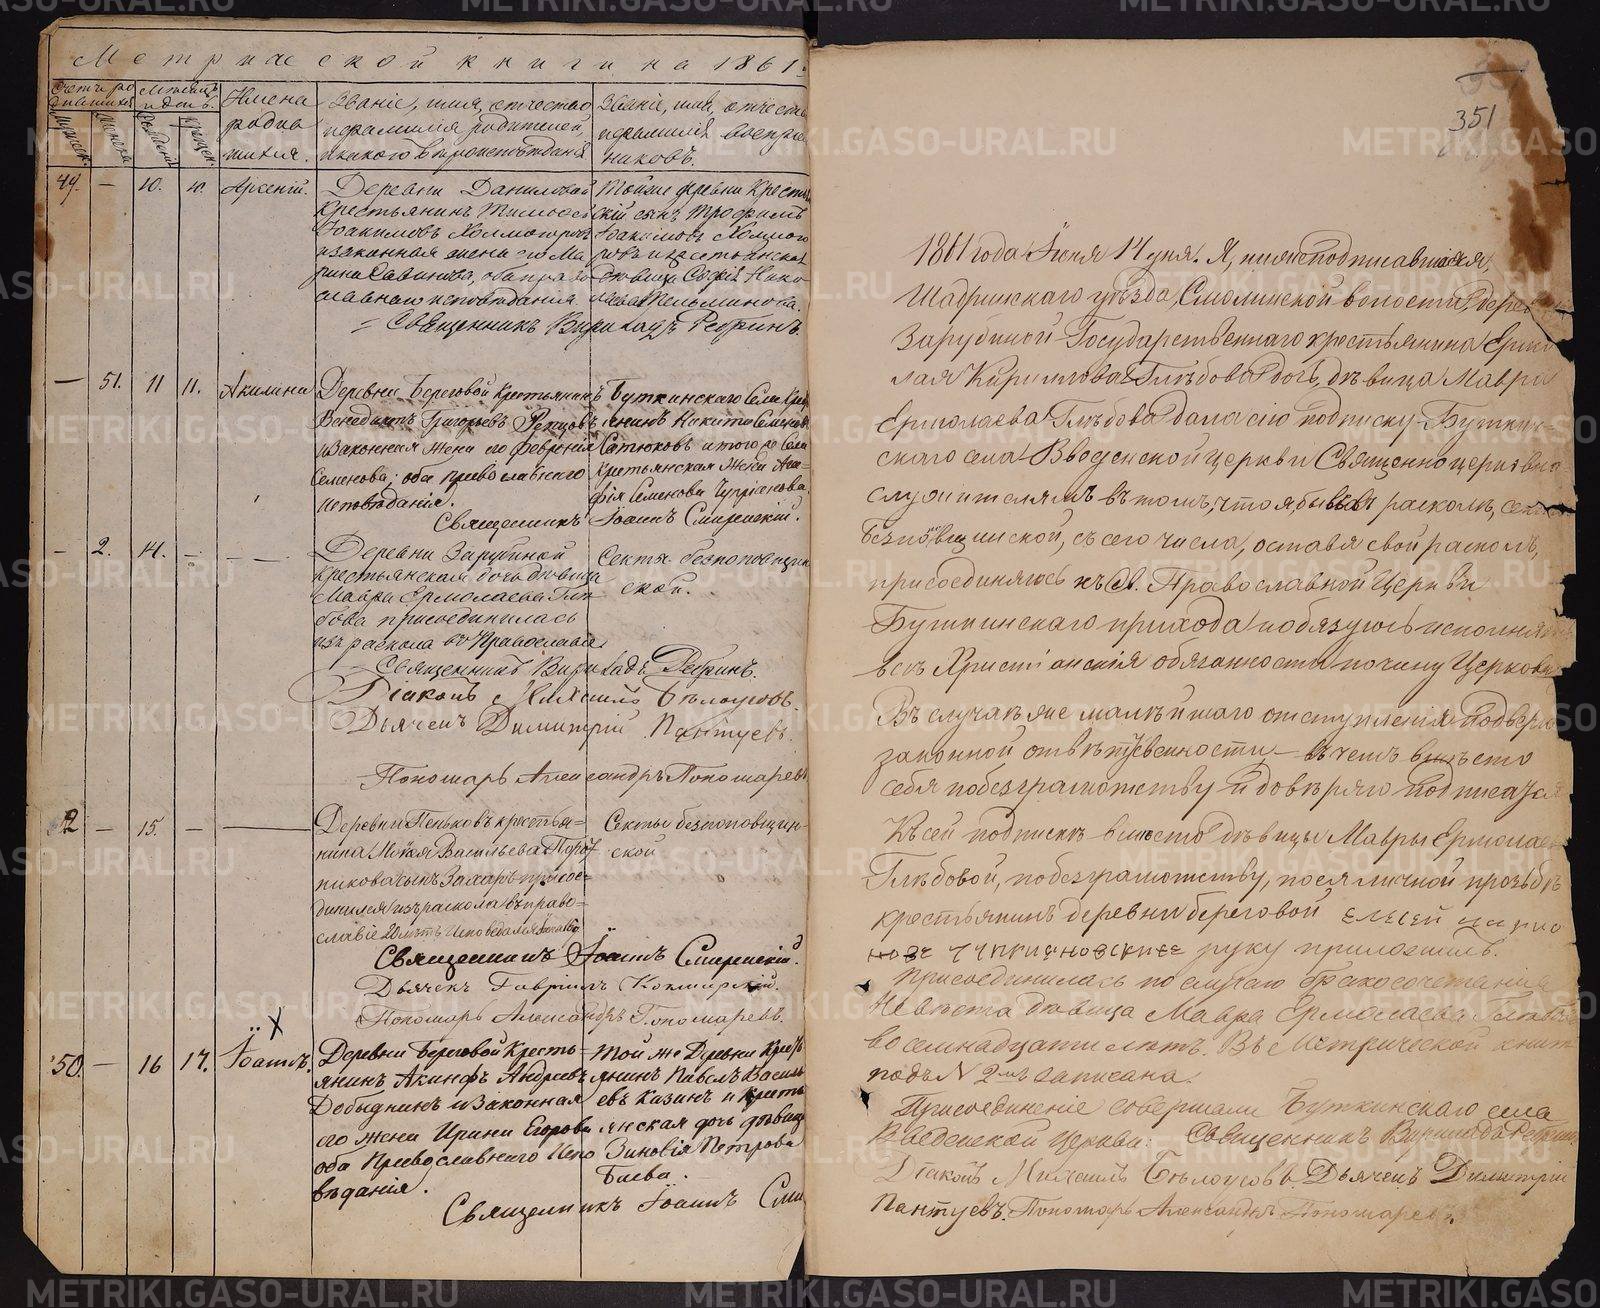 Метрической книги на 1861
Счетъ родившихся
Мѣсяцъ и день
Имена родившихся.
Званіе, имя, отчество и фамилія родителей, и какого вѣроисповѣданія
Званіе, имя, отчество и фамилія воспріемниковъ.
49. — 10. 10. Арсеній.
Деревни
Крестьянинъ
Іоакимовъ
и законная жена его Ма
рина Саввина, оба право
славнаго исповѣданія.
Тойже деревни Кресть
скій сынъ Трофимъ
Священникъ Вириладъ Ребринъ.
— 51. 11 11. Акилина
Деревни Береговой Крестьянинъ
Венедиктъ Григорьевъ
и законная жена его Февронія
Семенова; оба православнаго
исповѣданія.
Буткинскаго Села Кре
янинъ Никита Семеновъ
Сатюковъ и того же Села
Крестьянская жена Ага
фія Семенова
Священникъ Іоаннъ Смиренскій.
— 2. 14. — —
Деревни Зарубиной
крестьянская дочь дѣвица
Мавра Ермолаева Глѣ
бова присоединилась
изъ раскола въ Православіе
Секты безпоповщин
ской.
Священникъ Вириладъ Ребринъ.
Діаконъ Михаилъ Бѣлоусовъ.
Дьячекъ Димитрій Пантуевъ.
Пономарь Александръ Пономаревъ
2 — 15. — —
Деревни Пеньковъ крестья-
нина Васильева
сынъ Захаръ присое-
динился изъ раскола въ право-
славіе 20 лѣтъ
Секты безпоповщин-
ской
Священникъ Іоаннъ Смиренскій.
Дьячекъ Гавріилъ
Пономарь Александръ Пономаревъ.
50. — 16 17. Іоаннъ.
Деревни Береговой Кресть-
янинъ Акинфъ Андреевъ
и законная
его жена Ирина Егорова
оба Православнаго Испо
вѣданія.
Той же Деревни Кресть
янинъ Павелъ Василь
евъ Казинъ и Кресть
янская дочь дѣвица
Зиновія Петрова
Баева.
Священникъ Іоаннъ Сми
351
1861 года Іюня 14 дня. Я, нижеподписавшаяся,
Шадринскаго уѣзда, Смолинской волости, дерев
Зарубиной Государственнаго крестьянина Ермо
лая Кириллова Глѣбова дочь, дѣвица Мавра
Ермолаева Глѣбова дала сію подписку Буткин-
скаго села Введенской церкви Священноцерковно-
служителямъ въ томъ, что я, бывъ въ расколѣ, секты
Безпоповщинской, съ сего числа, оставя свой расколъ,
присоединяюсь къ Св. Православной Церкви
Буткинскаго прихода и обязуюсь исполнять
всѣ Христіанскія обязанности по чину Церкви
Въ случаѣ же малѣйшаго отступленія подвергаюсь
законной отвѣтственности, — въ чемъ вмѣсто
себя по безграмотству и довѣряю подписаться
Къ сей подпискѣ вмѣсто дѣвицы Мавры Ермолаев
Глѣбовой, по безграмотству, по ея личной прозьбѣ
крестьянинъ деревни береговой елисей
руку приложилъ.
Присоединилась по случаю бракосочетанія
Невѣста дѣвица Мавра Ермолаева Глѣбова
восемнадцати лѣтъ. Въ Метрической книгѣ
подъ N 2мъ записана.
Присоединеніе совершали Буткинскаго села
Введенской церкви: Священникъ Вириладъ Ребринъ,
Діаконъ Михаилъ Бѣлоусовъ. Дьячекъ Димитрій
Пантуевъ. Пономарь Александръ Пономаревъ.
METRIKI.GASO-URAL.RU